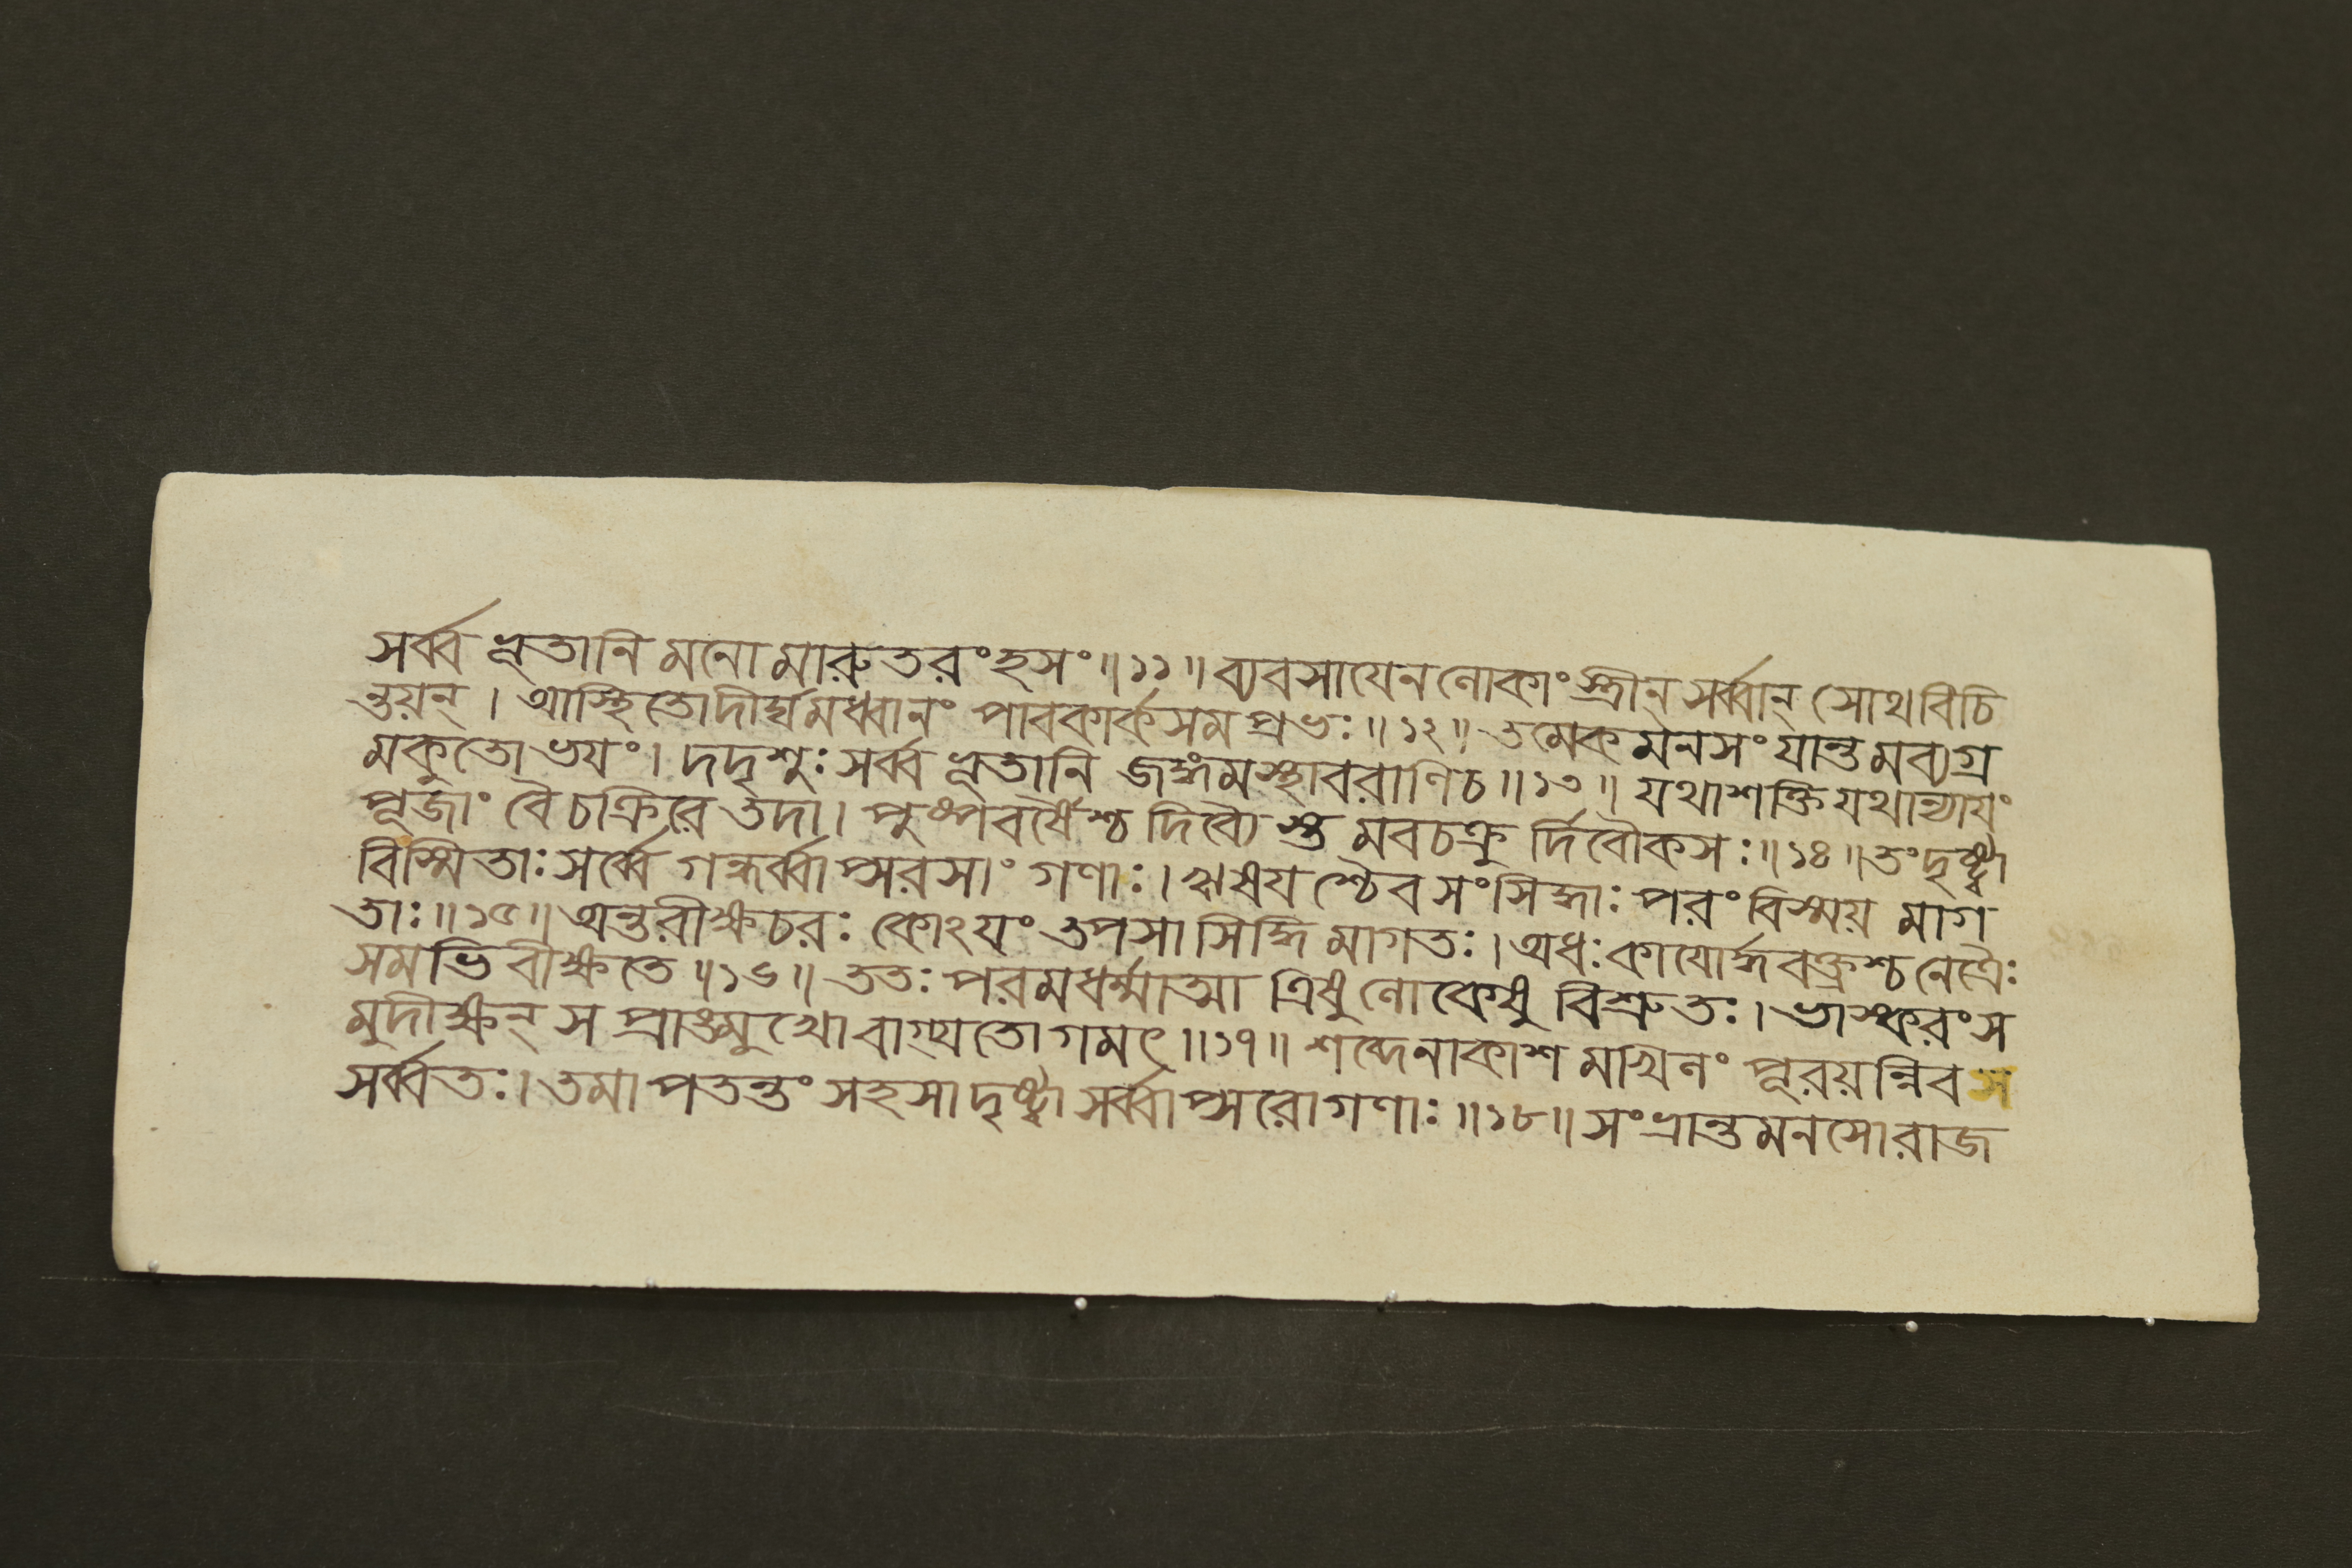 সর্ব্ব ভূতানি মনো মারুতরংহসং॥১১॥ ব্যবসায়েনলোকাংস্ত্রীন্ সর্ব্বান্ সোথবিচি
ন্তয়ন্ । আস্থিতোদীর্ঘমধ্বানং পাবকার্কসমপ্রভঃ॥১২॥ তমেকমনসংযান্তমব্যগ্র
মকুতোভয়ং। দদৃশুঃসর্ব্বভূতানি জঙ্গমস্থাবরাণিচ॥১৩॥ যথাশক্তিযথান্যায়ং
পূজাং বৈচক্রিরেতদা। পুষ্পবর্ষৈশ্চ দিব্যৈস্তমবচক্রুর্দিবৌকসঃ॥১৪॥তংদৃষ্ট্বা
বিস্মিতাঃসর্ব্বে গন্ধর্ব্বাপ্সরসাং গণাঃ।ঋষয়শ্চৈবসংসিদ্ধাঃ পরংবিস্ময় মাগ
তাঃ॥১৫॥অন্তরীক্ষচরঃ কোঽয়ং তপসা সিদ্ধিমাগতঃ।অধঃকায়োর্দ্ধবক্ত্রশ্চনেত্রৈঃ
সমভিবীক্ষতে॥১৬॥ ততঃ পরমধর্ম্মাত্মা ত্রিষুলোকেষু বিশ্রুতঃ। ভাস্করংস
মুদীক্ষন্ স প্রাঙমুখোবাগ্যতোগমৎ॥১৭॥ শব্দেনাকাশ মখিলং পূরয়ন্নিবস
সর্ব্বতঃ।তমাপতন্তং সহসাদৃষ্ট্বা সর্ব্বাপ্সরোগণাঃ॥১৮॥সংভ্রান্তমনসোরাজ